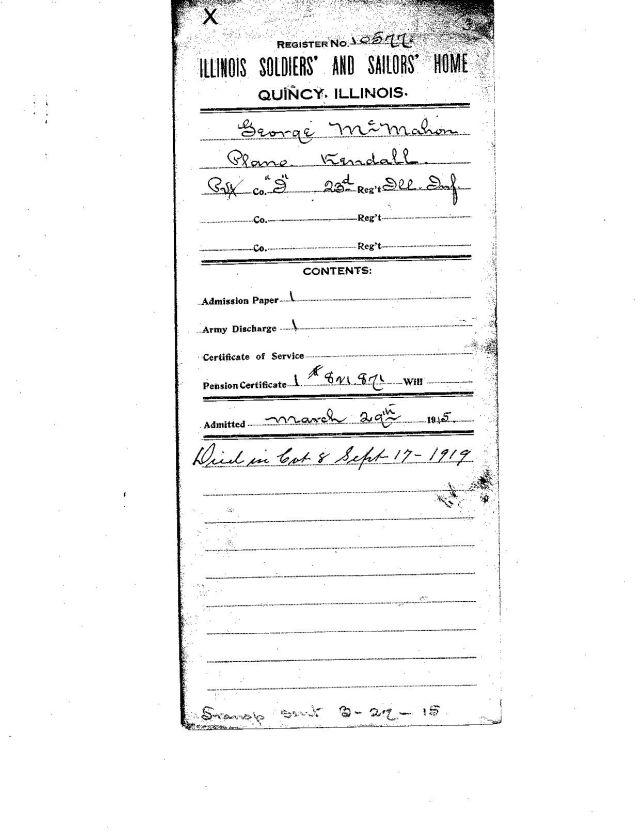 X
REGISTER No. 10577.
ILLINOIS SOLDIERS' AND SAILORS' HOME
QUINCY, ILLINOIS.
George McMahon
Plano Kendall
Pvt Co. "I" 23d Reg't Ill. Inf.
Co. Reg't
Co. Reg't
CONTENTS:
Admission Paper 1
Army Discharge 1
Certificate of Service
Pension Certificate 1 # 821.871 Will
Admitted March 29th 1915.
Died in Cot 8 Sept-17-1919
Transp sent 3-27-15